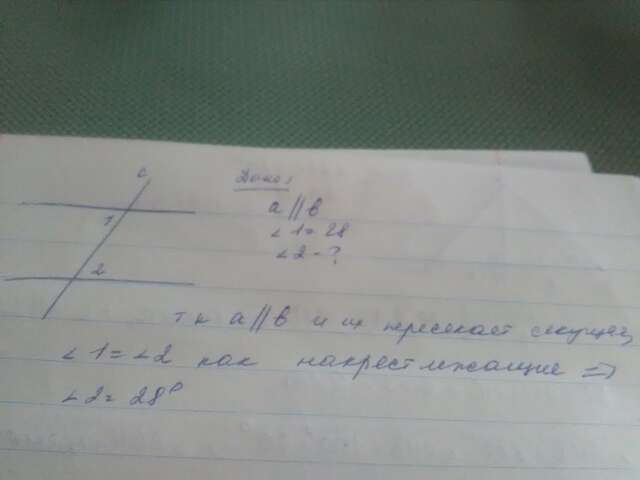 c
Дано:
a || b
∠1 = 28
∠2 - ?
1
2
т к a || b и их пересекает секущей
∠1 = ∠2 как накрест лежащие =>
∠2 = 28°